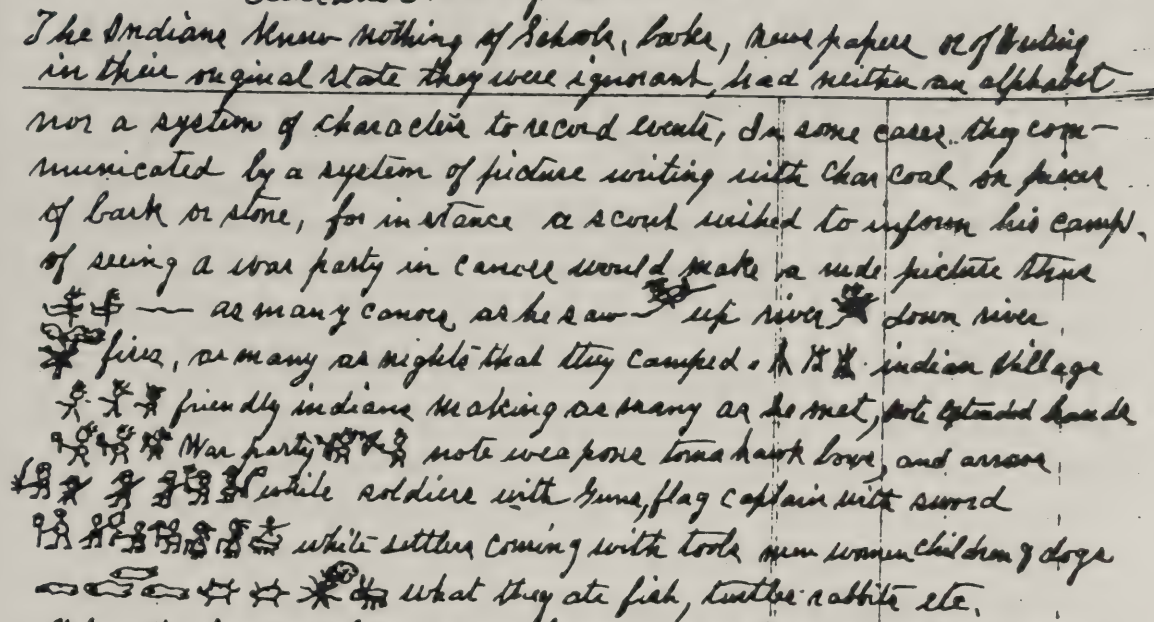 The Indians knew nothing of Schools, books, news papers or of Writing
in their original state they were ignorant, had neither an alphabet
nor a system of characters to record events, In some cases they com-
municated by a system of picture writing with char coal on pieces
of bark or stone, for instance a scout wished to inform his camp.
of seeing a war party in canoes would make a rude picture thus
— as many canoes as he saw up river down river
fires, as many as nights that they camped. indian Village
friendly indians making as many as he met, note extended hands
War party note weapons tomahawk bows, and arrows
white soldiers with Guns, flag captain with sword
white settlers coming with tools men women children & dogs
what they ate fish, turtles rabbits etc.